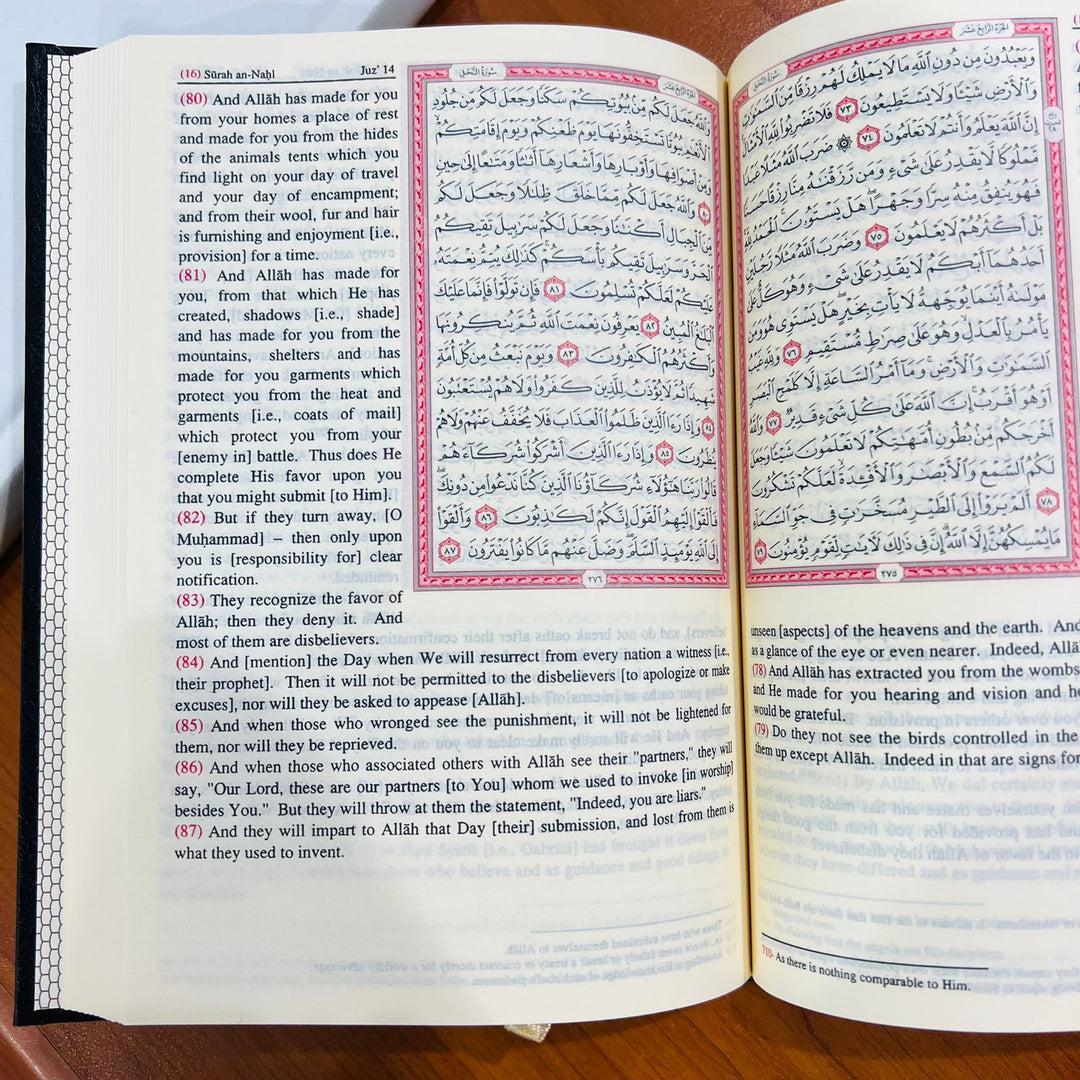 (16) Sūrah an-Naḥl Juz' 14
(80) And Allāh has made for you
from your homes a place of rest
and made for you from the hides
of the animals tents which you
find light on your day of travel
and your day of encampment;
and from their wool, fur and hair
is furnishing and enjoyment [i.e.,
provision] for a time.
(81) And Allāh has made for
you, from that which He has
created, shadows [i.e., shade]
and has made for you from the
mountains, shelters and has
made for you garments which
protect you from the heat and
garments [i.e., coats of mail]
which protect you from your
[enemy in] battle. Thus does He
complete His favor upon you
that you might submit [to Him].
(82) But if they turn away, [O
Muḥammad] – then only upon
you is [responsibility for] clear
notification.
(83) They recognize the favor of
Allāh; then they deny it. And
most of them are disbelievers.
(84) And [mention] the Day when We will resurrect from every nation a witness [i.e.,
their prophet]. Then it will not be permitted to the disbelievers [to apologize or make
excuses], nor will they be asked to appease [Allāh].
(85) And when those who wronged see the punishment, it will not be lightened for
them, nor will they be reprieved.
(86) And when those who associated others with Allāh see their "partners," they will
say, "Our Lord, these are our partners [to You] whom we used to invoke [in worship]
besides You." But they will throw at them the statement, "Indeed, you are liars."
(87) And they will impart to Allāh that Day [their] submission, and lost from them is
what they used to invent.
سُورَةُ النَّحْلِ الجُزْءُ الرَّابِعَ عَشَرَ
وَٱللَّهُ جَعَلَ لَكُم مِّنۢ بُيُوتِكُمْ سَكَنًا وَجَعَلَ لَكُم مِّن جُلُودِ
ٱلْأَنْعَٰمِ بُيُوتًا تَسْتَخِفُّونَهَا يَوْمَ ظَعْنِكُمْ وَيَوْمَ إِقَامَتِكُمْ ۙ
وَمِنْ أَصْوَافِهَا وَأَوْبَارِهَا وَأَشْعَارِهَآ أَثَٰثًا وَمَتَٰعًا إِلَىٰ حِينٍ
٨٠ وَٱللَّهُ جَعَلَ لَكُم مِّمَّا خَلَقَ ظِلَٰلًا وَجَعَلَ لَكُم
مِّنَ ٱلْجِبَالِ أَكْنَٰنًا وَجَعَلَ لَكُمْ سَرَٰبِيلَ تَقِيكُمُ
ٱلْحَرَّ وَسَرَٰبِيلَ تَقِيكُم بَأْسَكُمْ ۚ كَذَٰلِكَ يُتِمُّ نِعْمَتَهُۥ
عَلَيْكُمْ لَعَلَّكُمْ تُسْلِمُونَ ٨١ فَإِن تَوَلَّوْا۟ فَإِنَّمَا عَلَيْكَ
ٱلْبَلَٰغُ ٱلْمُبِينُ ٨٢ يَعْرِفُونَ نِعْمَتَ ٱللَّهِ ثُمَّ يُنكِرُونَهَا
وَأَكْثَرُهُمُ ٱلْكَٰفِرُونَ ٨٣ وَيَوْمَ نَبْعَثُ مِن كُلِّ أُمَّةٍ
شَهِيدًا ثُمَّ لَا يُؤْذَنُ لِلَّذِينَ كَفَرُوا۟ وَلَا هُمْ يُسْتَعْتَبُونَ
٨٤ وَإِذَا رَءَا ٱلَّذِينَ ظَلَمُوا۟ ٱلْعَذَابَ فَلَا يُخَفَّفُ عَنْهُمْ وَلَا هُمْ
يُنظَرُونَ ٨٥ وَإِذَا رَءَا ٱلَّذِينَ أَشْرَكُوا۟ شُرَكَآءَهُمْ
قَالُوا۟ رَبَّنَا هَٰٓؤُلَآءِ شُرَكَآؤُنَا ٱلَّذِينَ كُنَّا نَدْعُوا۟ مِن دُونِكَ ۖ
فَأَلْقَوْا۟ إِلَيْهِمُ ٱلْقَوْلَ إِنَّكُمْ لَكَٰذِبُونَ ٨٦ وَأَلْقَوْا۟
إِلَى ٱللَّهِ يَوْمَئِذٍ ٱلسَّلَمَ ۖ وَضَلَّ عَنْهُم مَّا كَانُوا۟ يَفْتَرُونَ ٨٧
٢٧٦
سُورَةُ النَّحْلِ الجُزْءُ الرَّابِعَ عَشَرَ
وَيَعْبُدُونَ مِن دُونِ ٱللَّهِ مَا لَا يَمْلِكُ لَهُمْ رِزْقًا مِّنَ ٱلسَّمَٰوَٰتِ
وَٱلْأَرْضِ شَيْـًٔا وَلَا يَسْتَطِيعُونَ ٧٣ فَلَا تَضْرِبُوا۟ لِلَّهِ ٱلْأَمْثَالَ ۚ
إِنَّ ٱللَّهَ يَعْلَمُ وَأَنتُمْ لَا تَعْلَمُونَ ٧٤ ۞ ضَرَبَ ٱللَّهُ مَثَلًا عَبْدًا
مَّمْلُوكًا لَّا يَقْدِرُ عَلَىٰ شَىْءٍ وَمَن رَّزَقْنَٰهُ مِنَّا رِزْقًا حَسَنًا
فَهُوَ يُنفِقُ مِنْهُ سِرًّا وَجَهْرًا ۖ هَلْ يَسْتَوُۥنَ ۚ ٱلْحَمْدُ لِلَّهِ ۚ
بَلْ أَكْثَرُهُمْ لَا يَعْلَمُونَ ٧٥ وَضَرَبَ ٱللَّهُ مَثَلًا رَّجُلَيْنِ
أَحَدُهُمَآ أَبْكَمُ لَا يَقْدِرُ عَلَىٰ شَىْءٍ وَهُوَ كَلٌّ عَلَىٰ
مَوْلَىٰهُ أَيْنَمَا يُوَجِّههُّ لَا يَأْتِ بِخَيْرٍ ۖ هَلْ يَسْتَوِى هُوَ وَمَن
يَأْمُرُ بِٱلْعَدْلِ ۙ وَهُوَ عَلَىٰ صِرَٰطٍ مُّسْتَقِيمٍ ٧٦ وَلِلَّهِ غَيْبُ
ٱلسَّمَٰوَٰتِ وَٱلْأَرْضِ ۚ وَمَآ أَمْرُ ٱلسَّاعَةِ إِلَّا كَلَمْحِ ٱلْبَصَرِ
أَوْ هُوَ أَقْرَبُ ۚ إِنَّ ٱللَّهَ عَلَىٰ كُلِّ شَىْءٍ قَدِيرٌ ٧٧ وَٱللَّهُ
أَخْرَجَكُم مِّنۢ بُطُونِ أُمَّهَٰتِكُمْ لَا تَعْلَمُونَ شَيْـًٔا وَجَعَلَ
لَكُمُ ٱلسَّمْعَ وَٱلْأَبْصَٰرَ وَٱلْأَفْـِٔدَةَ ۙ لَعَلَّكُمْ تَشْكُرُونَ
٧٨ أَلَمْ يَرَوْا۟ إِلَى ٱلطَّيْرِ مُسَخَّرَٰتٍ فِى جَوِّ ٱلسَّمَآءِ
مَا يُمْسِكُهُنَّ إِلَّا ٱللَّهُ ۗ إِنَّ فِى ذَٰلِكَ لَءَايَٰتٍ لِّقَوْمٍ يُؤْمِنُونَ ٧٩
٢٧٥
unseen [aspects] of the heavens and the earth. And
as a glance of the eye or even nearer. Indeed, Allā
(78) And Allāh has extracted you from the wombs
and He made for you hearing and vision and he
would be grateful.
(79) Do they not see the birds controlled in the
them up except Allāh. Indeed in that are signs for
710- As there is nothing comparable to Him.